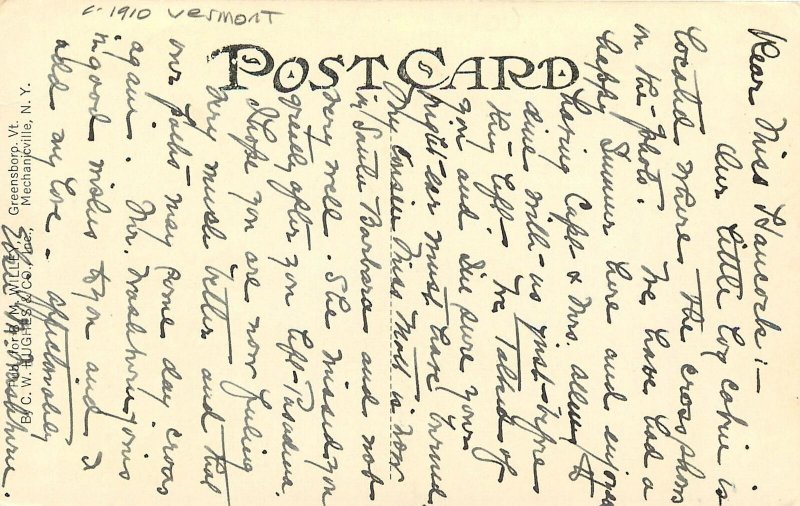 c-1910 Vermont
POST CARD
Dear Miss Hancock:-
Our little log cabin is
located where the cross shows
in the photo. We have had a
happy Summer here and enjoyed
having Capt & Mrs. Allen to
dine with us just before
they left. We talked of
you and I'm sure your
right ear must have burned.
My cousin Miss Mott is now
in Santa Barbara and not
very well. She missed you
greatly after you left Pasadena.
I hope you are now feeling
very much better and that
our paths may some day cross
again. Mr. Washburn joins
in good wishes to you and I
add my love. Affectionately
Washburn.
Pub. for B. N. WILLEY, Greensboro, Vt.
By C. W. HUGHES & CO., Inc., Mechanicville, N. Y.